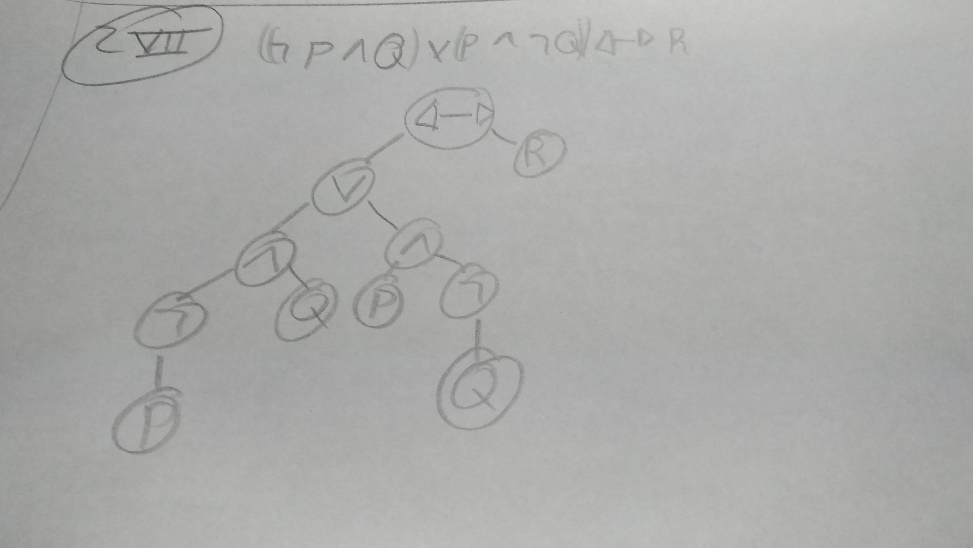 2 VII ((¬P∧Q)∨(P∧¬Q))↔R
↔
R
∨
∧ ∧
¬ Q P ¬
P Q